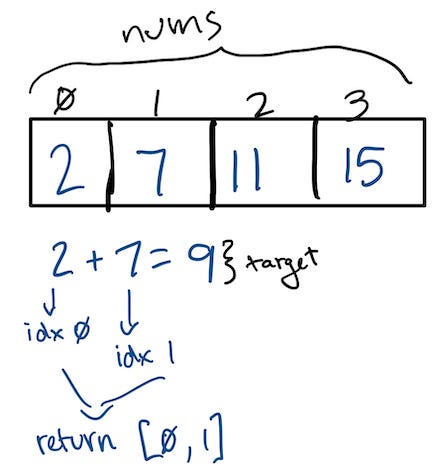 nums
0 1 2 3
2 7 11 15
2 + 7 = 9 } target
idx 0
idx 1
return [0,1]